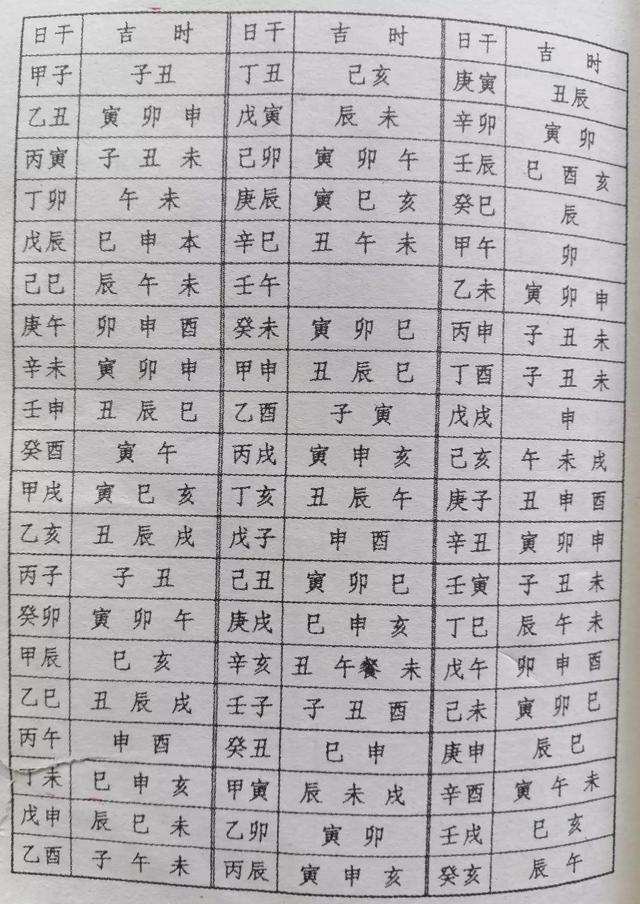 日干 吉 时 日干 吉 时 日干 吉 时
甲子 子丑 丁丑 己亥 庚寅 丑辰
乙丑 寅 卯 申 戊寅 辰 未 辛卯 寅 卯
丙寅 子 丑 未 己卯 寅 卯 午 壬辰 巳 酉 亥
丁卯 午 未 庚辰 寅 巳 亥 癸巳 辰
戊辰 巳 申 本 辛巳 丑 午 未 甲午 卯
己巳 辰 午 未 壬午 乙未 寅 卯 申
庚午 卯 申 酉 癸未 寅 卯 巳 丙申 子 丑 未
辛未 寅 卯 申 甲申 丑 辰 巳 丁酉 子 丑 未
壬申 丑 辰 巳 乙酉 子 寅 戊戌 申
癸酉 寅 午 丙戌 寅 申 亥 己亥 午 未 戌
甲戌 寅 巳 亥 丁亥 丑 辰 午 庚子 丑 申 酉
乙亥 丑 辰 戌 戊子 申 酉 辛丑 寅 卯 申
丙子 子 丑 己丑 寅 卯 巳 壬寅 子 丑 未
癸卯 寅 卯 午 庚戌 巳 申 亥 丁巳 辰 午 未
甲辰 巳 亥 辛亥 丑 午餐 未 戊午 卯 申 酉
乙巳 丑 辰 戌 壬子 子 丑 酉 己未 寅 卯 巳
丙午 申 酉 癸丑 巳 申 庚申 辰 巳
丁未 巳 申 亥 甲寅 辰 未 戌 辛酉 寅 午 未
戊申 辰 巳 未 乙卯 寅 卯 壬戌 巳 亥
乙酉 子 午 未 丙辰 寅 申 亥 癸亥 辰 午